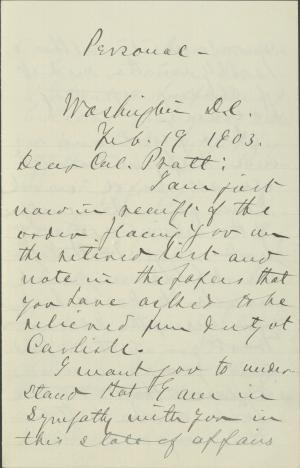 Personal -
Washington D.C.
Feb. 19 1903.
Dear Col. Pratt:
I am just
now in receipt of the
order placing you on
the retired list and
note in the papers that
you have asked to be
relieved from duty at
Carlisle.
I want you to under-
stand that I am in
sympathy with you in
this state of affairs